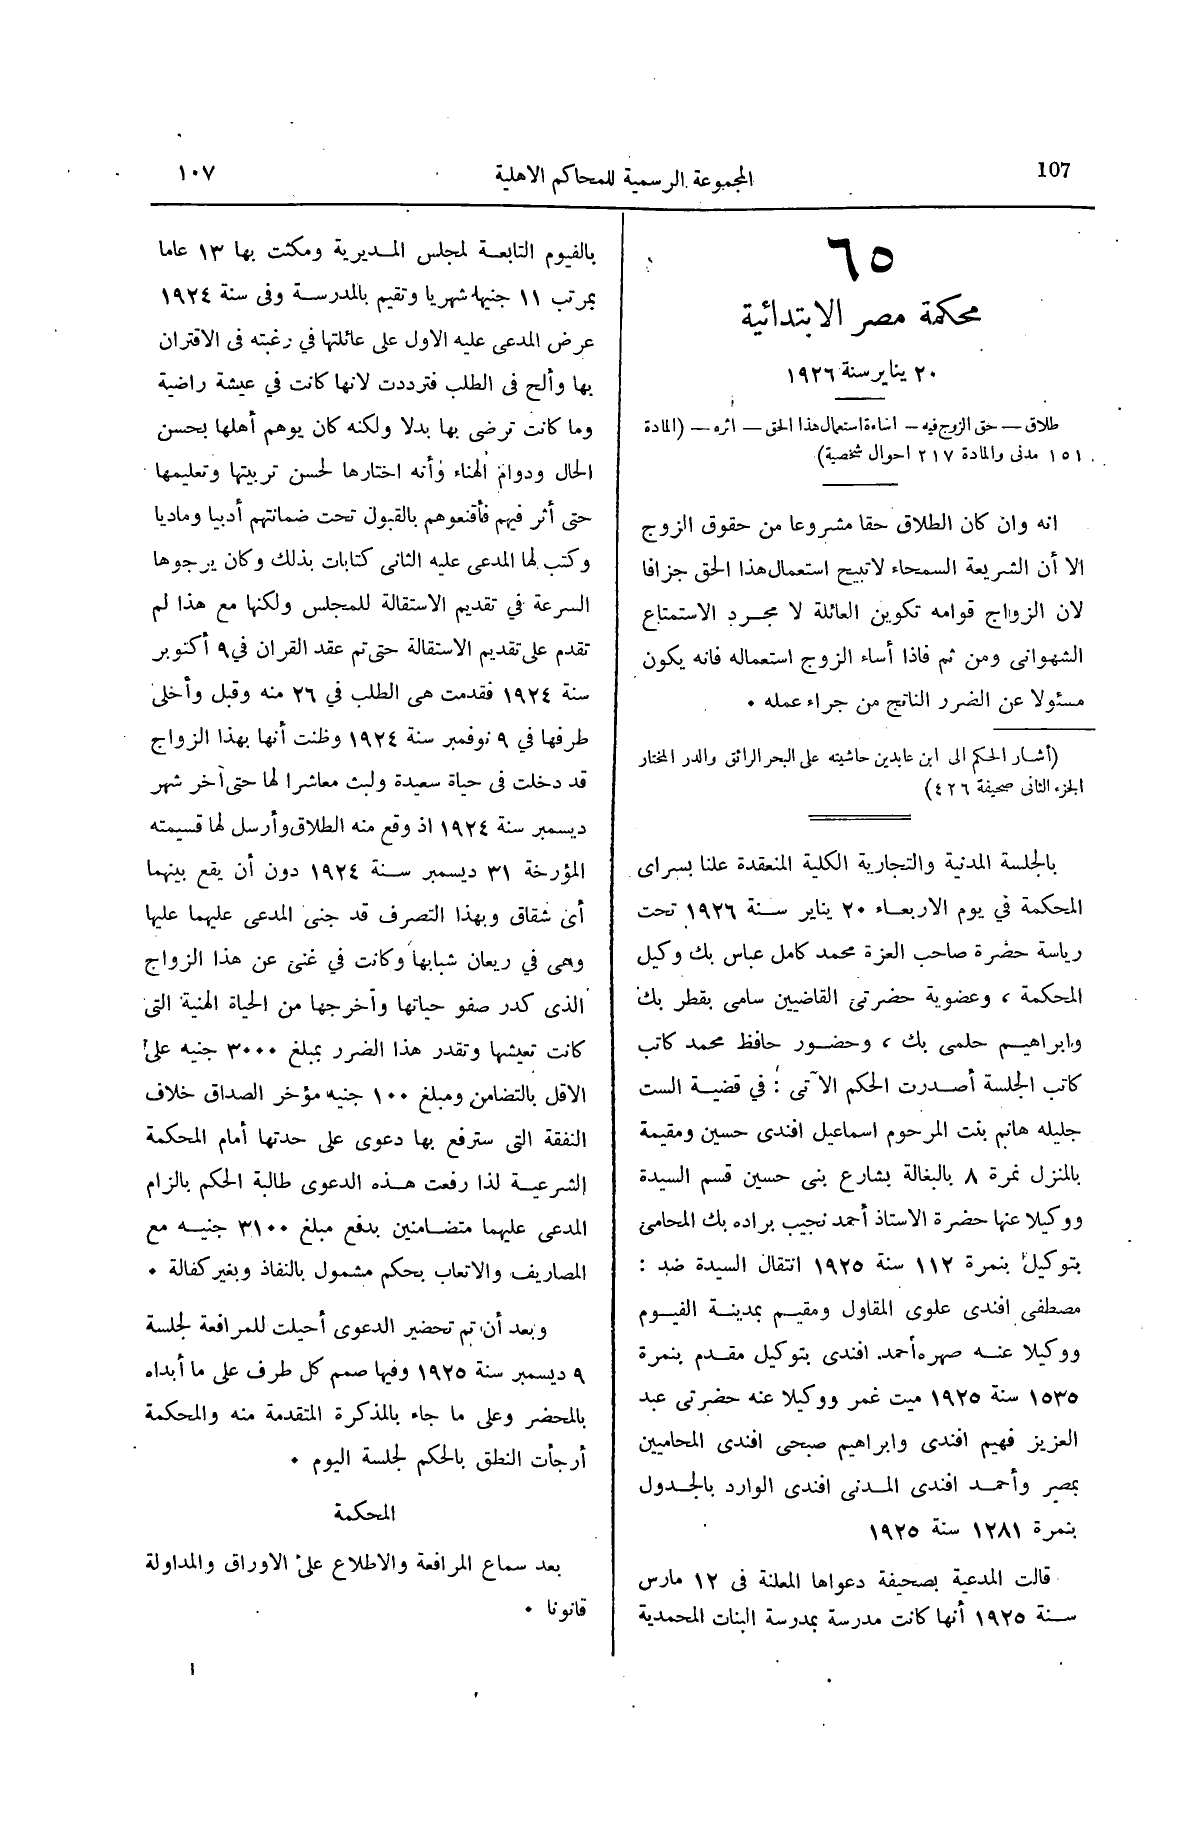 107
المجموعة الرسمية للمحاكم الاهلية
١٠٧
٦٥
محكمة مصر الابتدائية
٢٠ يناير سنة ١٩٢٦
طلاق — حق الزوج فيه — اساءة استعمال هذا الحق — أثره — (المادة
١٥١ مدنى والمادة ٢١٧ احوال شخصية)
انه وان كان الطلاق حقا مشروعا من حقوق الزوج
الا أن الشريعة السمحاء لاتبيح استعمال هذا الحق جزافا
لان الزواج قوامه تكوين العائلة لا مجرد الاستمتاع
الشهوانى ومن ثم فاذا أساء الزوج استعماله فانه يكون
مسئولا عن الضرر الناتج من جراء عمله ٠
(أشار الحكم الى ابن عابدين حاشيته على البحر الرائق والدر المختار
الجزء الثانى صحيفة ٤٢٦)
بالجلسة المدنية والتجارية الكلية المنعقدة علنا بسراى
المحكمة في يوم الاربعاء ٢٠ يناير سنة ١٩٢٦ تحت
رياسة حضرة صاحب العزة محمد كامل عباس بك وكيل
المحكمة ، وعضوية حضرتى القاضيين سامى بقطر بك
وابراهيم حلمى بك ، وحضور حافظ محمد كاتب
كاتب الجلسة أصدرت الحكم الآتى : في قضية الست
جليله هانم بنت المرحوم اسماعيل افندى حسين ومقيمة
بالمنزل نمرة ٨ بالبغالة بشارع بنى حسين قسم السيدة
ووكيلا عنها حضرة الاستاذ أحمد نجيب براده بك المحامى
بتوكيل بنمرة ١١٢ سنة ١٩٢٥ انتقال السيدة ضد :
مصطفى افندى علوى المقاول ومقيم بمدينة الفيوم
ووكيلا عنه صهره أحمد افندى بتوكيل مقدم بنمرة
١٥٣٥ سنة ١٩٢٥ ميت غمر ووكيلا عنه حضرتى عبد
العزيز فهيم افندى وابراهيم صبحى افندى المحاميين
بمصر وأحمد افندى المدنى افندى الوارد بالجدول
بنمرة ١٢٨١ سنة ١٩٢٥
قالت المدعية بصحيفة دعواها المعلنة فى ١٢ مارس
سنة ١٩٢٥ أنها كانت مدرسة بمدرسة البنات المحمدية
بالفيوم التابعة لمجلس المديرية ومكثت بها ١٣ عاما
بمرتب ١١ جنيها شهريا وتقيم بالمدرسة وفى سنة ١٩٢٤
عرض المدعى عليه الاول على عائلتها في رغبته فى الاقتران
بها وألح فى الطلب فترددت لانها كانت في عيشة راضية
وما كانت ترضى بها بدلا ولكنه كان يوهم أهلها بحسن
الحال ودوام الهناء وأنه اختارها لحسن تربيتها وتعليمها
حتى أثر فيهم فأقنعوهم بالقبول تحت ضمانتهم أدبيا وماديا
وكتب لها المدعى عليه الثانى كتابات بذلك وكان يرجوها
السرعة في تقديم الاستقالة للمجلس ولكنها مع هذا لم
تقدم على تقديم الاستقالة حتى تم عقد القران في ٩ أكتوبر
سنة ١٩٢٤ فقدمت هى الطلب في ٢٦ منه وقبل وأخلى
طرفها في ٩ نوفمبر سنة ١٩٢٤ وظنت أنها بهذا الزواج
قد دخلت فى حياة سعيدة ولبث معاشرا لها حتى آخر شهر
ديسمبر سنة ١٩٢٤ اذ وقع منه الطلاق وأرسل لها قسيمته
المؤرخة ٣١ ديسمبر سنة ١٩٢٤ دون أن يقع بينهما
أى شقاق وبهذا التصرف قد جنى المدعى عليهما عليها
وهى في ريعان شبابها وكانت في غنى عن هذا الزواج
الذى كدر صفو حياتها وأخرجها من الحياة الهنية التى
كانت تعيشها وتقدر هذا الضرر بمبلغ ٣٠٠٠ جنيه على
الاقل بالتضامن ومبلغ ١٠٠ جنيه مؤخر الصداق خلاف
النفقة التى سترفع بها دعوى على حدتها أمام المحكمة
الشرعية لذا رفعت هذه الدعوى طالبة الحكم بالزام
المدعى عليهما متضامنين بدفع مبلغ ٣١٠٠ جنيه مع
المصاريف والاتعاب بحكم مشمول بالنفاذ وبغير كفالة ٠
وبعد أن تم تحضير الدعوى أحيلت للمرافعة لجلسة
٩ ديسمبر سنة ١٩٢٥ وفيها صمم كل طرف على ما أبداه
بالمحضر وعلى ما جاء بالمذكرة المتقدمة منه والمحكمة
أرجأت النطق بالحكم لجلسة اليوم ٠
المحكمة
بعد سماع المرافعة والاطلاع على الاوراق والمداولة
قانونا ٠
١